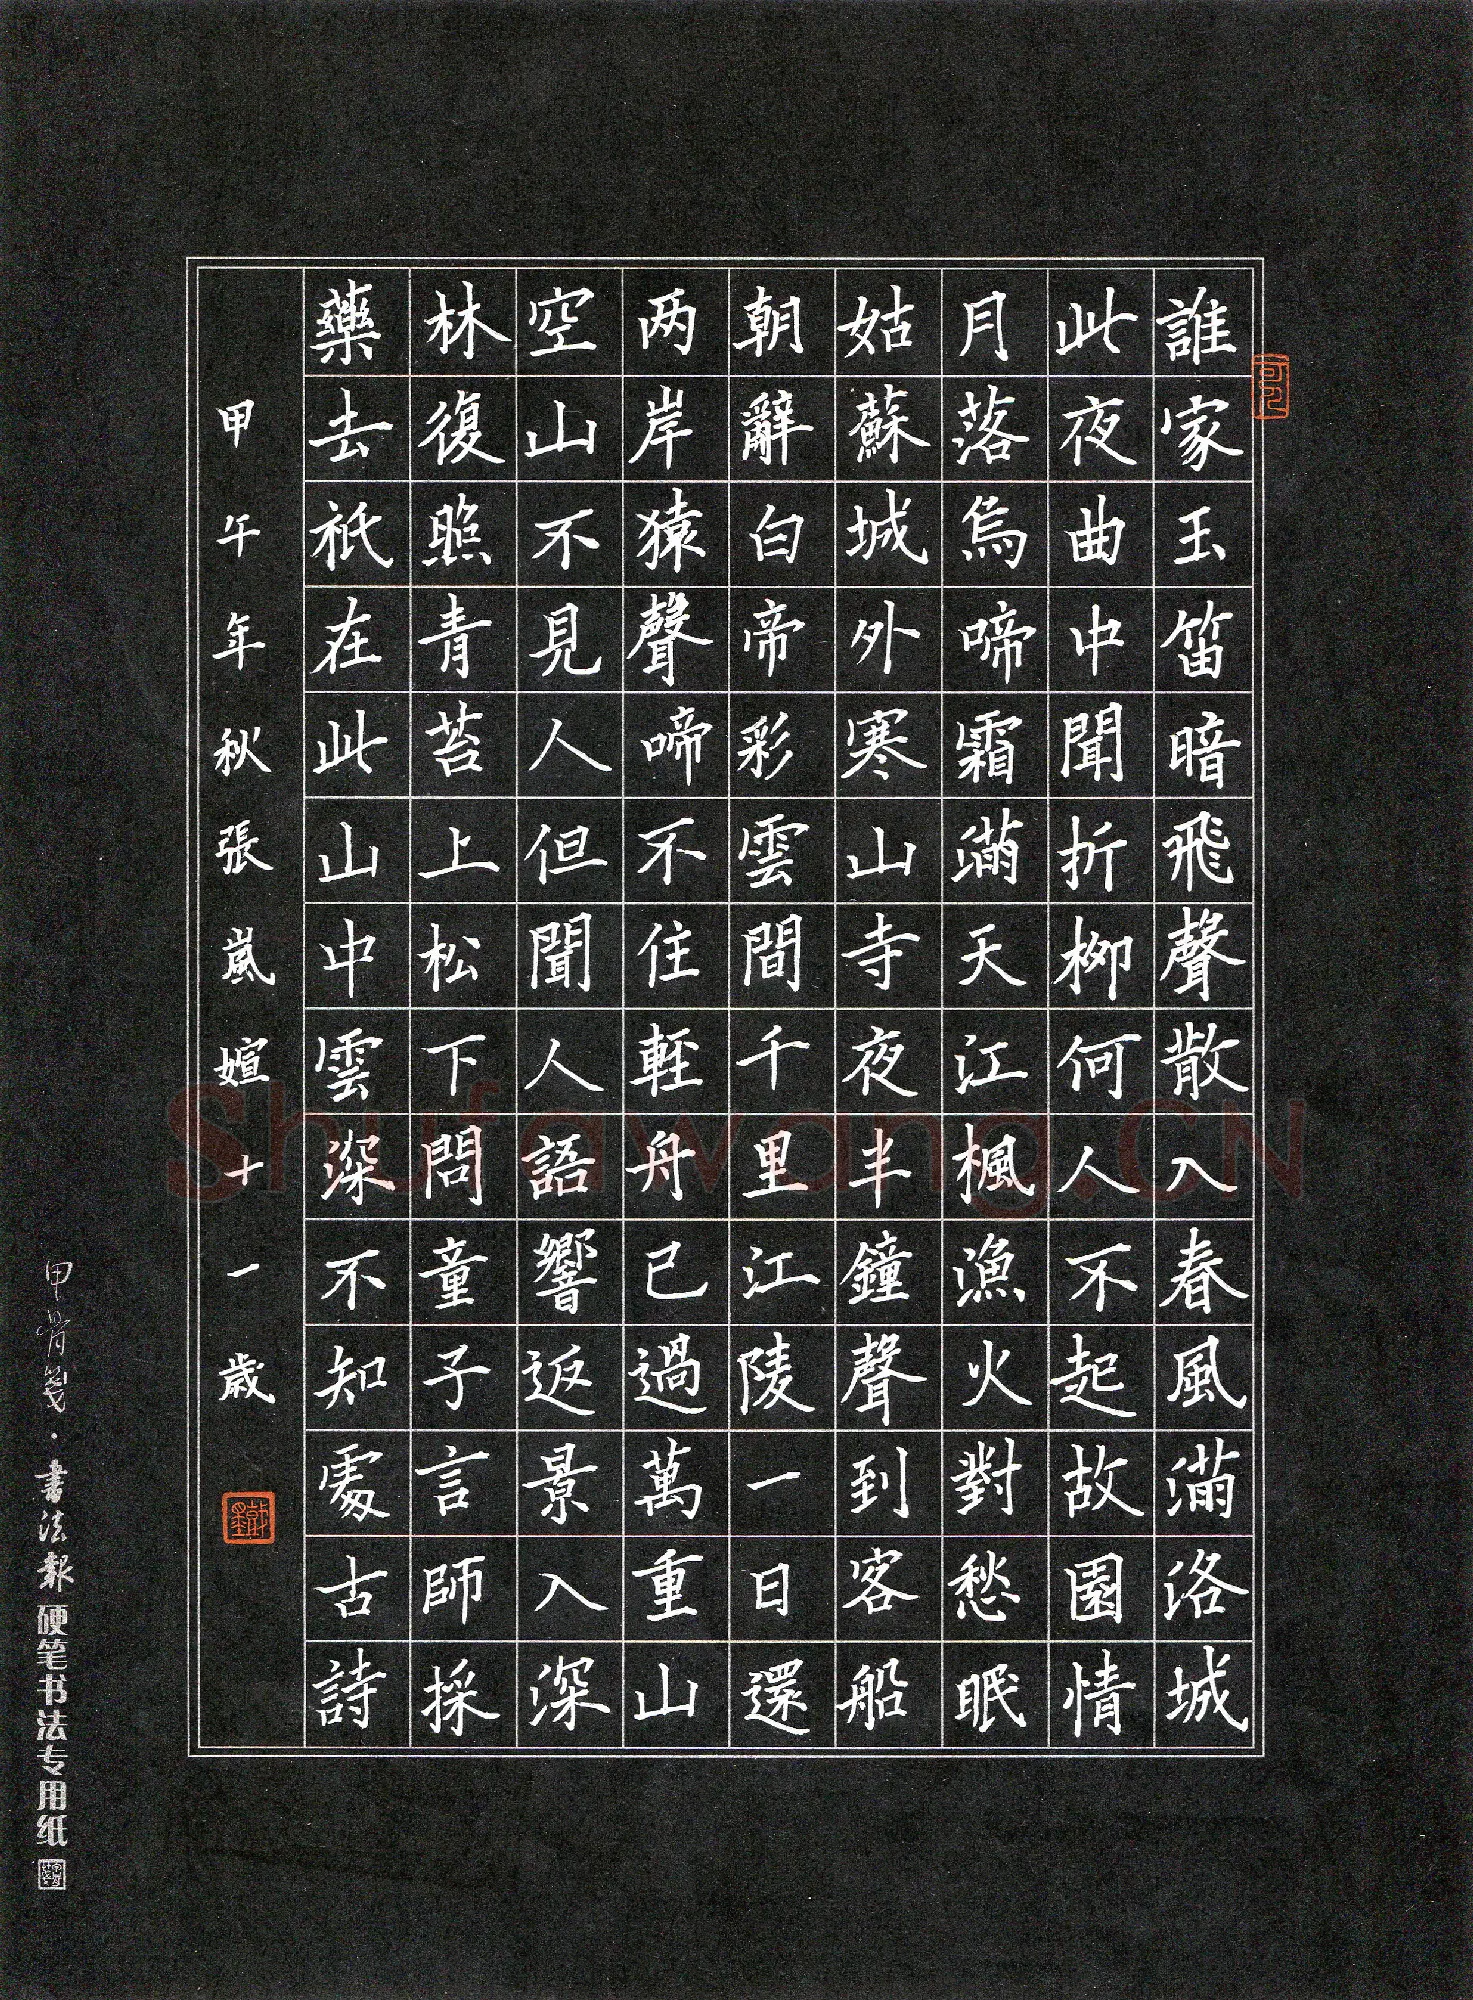 誰家玉笛暗飛聲散入春風滿洛城
此夜曲中聞折柳何人不起故園情
月落烏啼霜滿天江楓漁火對愁眠
姑蘇城外寒山寺夜半鐘聲到客船
朝辭白帝彩雲間千里江陵一日還
两岸猿聲啼不住輕舟已過萬重山
空山不見人但聞人語響返景入深
林復照青苔上松下問童子言師採
藥去祇在此山中雲深不知處古詩
甲午年秋張嵐媗十一歲
甲骨箋·書法報硬笔书法专用纸
Shufawang.CN